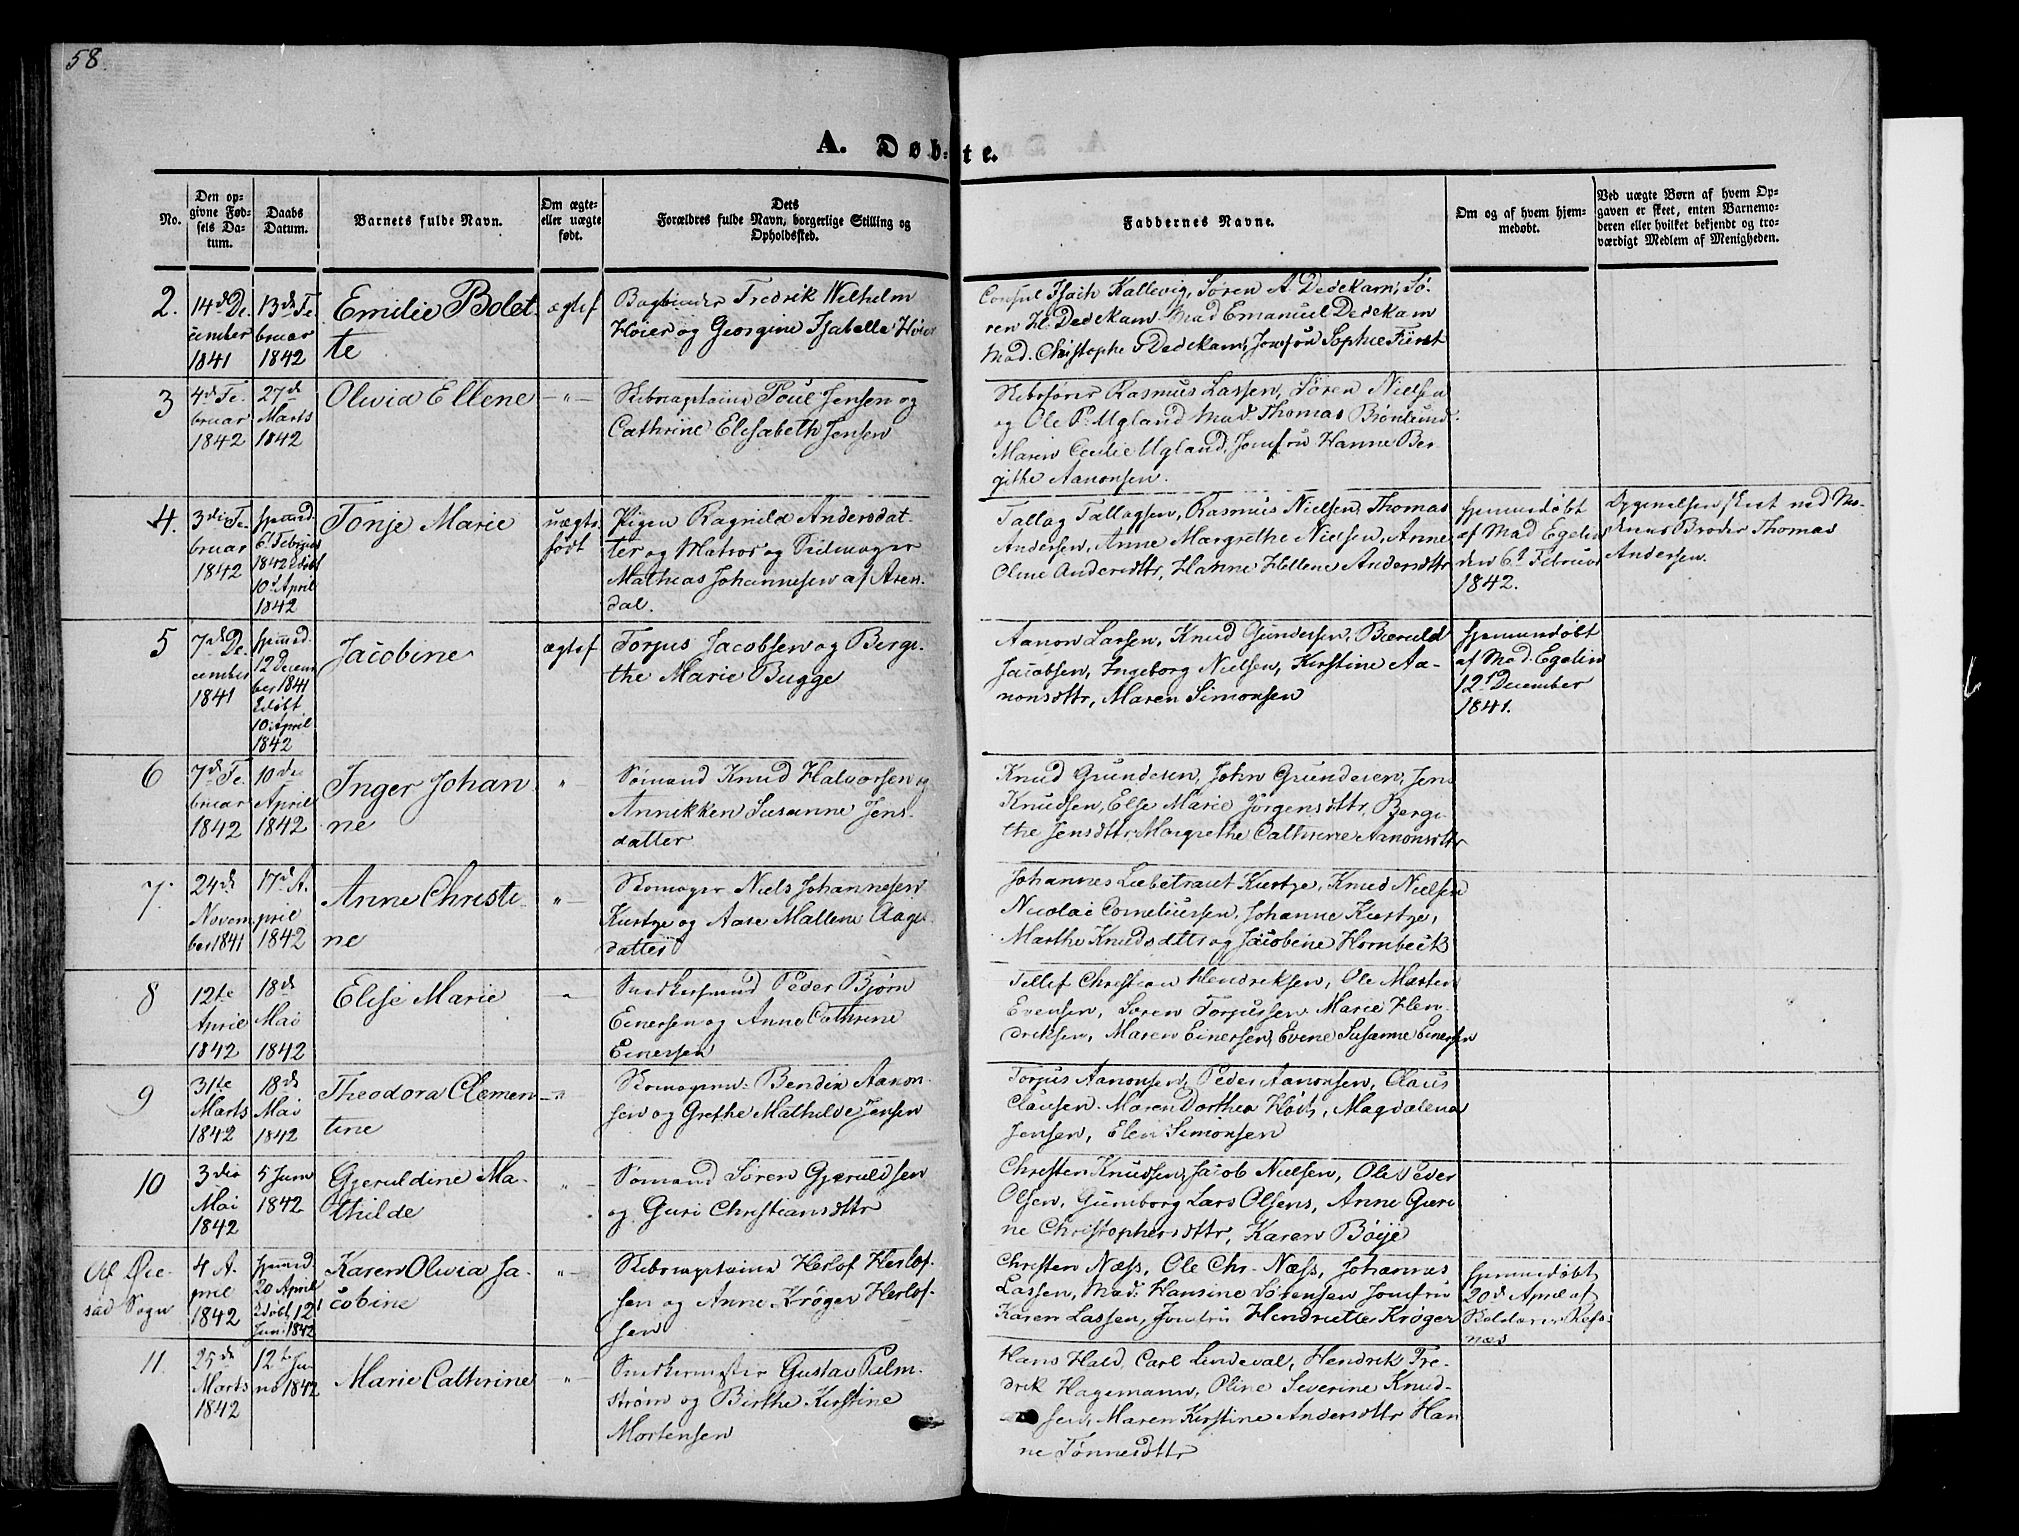 58.
A. Døb-
te.
No.
Den op-
givne Fød-
sels Da-
tum.
Daabs
Datum.
Barnets fulde Navn.
Om ægte-
eller uægte
født.
Dets
Forældres fulde Navn, borgerlige Stilling og
Opholdssted.
Faddernes Navne.
Om og af hvem hjem-
medøbt.
Ved uægte Børn af hvem Op-
gaven er skeet, enten Barnemo-
deren eller hvilket bekjendt og tro-
værdigt Medlem af Menigheden.
2.
14de De
cember
1841
13de Fe
bruar
1842
Emilie Bolet
te
ægtef
Bogbinder Fredrik Wilhelm
Høier og Georgine Isabella Høier
Consul Isach Kallevig, Søren A. Dedekam, Sø-
ren H. Dedekam Mad Emanuel Dedekam
Mad. Christophe Dedekam, Jomfru Sophie Fürst
3
4de Fe
bruar
1842
27de
Marts
1842
Olivia Ellene
— " —
Skibscaptaine Poul Jensen og
Cathrine Elisabeth Jensen
Skibsfører Rasmus Lassen, Søren Nielsen
og Ole P. Ugland Mad. Thomas Brønlund
Maren Cecilie Ugland, Jomfru Hanne Ber
githe Aanonsen.
4.
3die Fe
bruar
1842
hjemmd.
6t Februar
1842 Idøbt
10d April
1842
Tonje Marie
uægte
født
Pigen Ragnild Andersdat-
ter og Matros og Seilmager
Mathias Johannesen af Aren
dal.
Tallag Tallagsen, Rasmus Nielsen, Thomas
Andersen, Anne Margrethe Nielsen, Anne
Oline Andersdttr, Hanne Hellene Andersdttr
hjemmedøbt
af Mad Egelin
den 6t Februar
1842.
Opgivelsen skeet ved Mo-
derens Broder Thomas
Andersen.
5
7de De
cember
1841
hjemmd.
12 Decem
ber 1841
Idøbt
10 April
1842
Jacobine
ægtef
Torjus Jacobsen og Bergi-
the Marie Bugge
Aanon Larsen, Knud Gundersen, Bæruld
Jacobsen, Ingeborg Nielsen, Kirstine Aa-
nonsdttr, Maren Simonsen
hjemmedøbt
af Mad. Egelin
12t December
1841.
6
7de Fe
bruar
1842
10de
April
1842
Inger Johan
ne
"
Sømand Knud Halvorsen og
Annikken Susanne Jens-
datter
Knud Gundesen, John Gundesen, Jens
Knudsen, Else Marie Jørgensdttr, Bergi-
the Jensdttr, Margrethe Cathrine Aanonsdttr
7.
24de
Novem
ber 1841
17de A.
pril
1842
Anne Christi-
ne
" —
Skomager Niels Johannesen
Kiertge og Aase Mallene Aage
datter
Johannes Liebetraut Kiertge, Knud Nielsen
Nicolai Corneliussen, Johanne Kiertge,
Marthe Knudsdttr og Jacobine Hornbeck
8
12te
April
1842
18de
Mai
1842
Elise Marie
"
Snedkersvend Peder Bjørn
Einersen og Anne Cathrine
Einersen
Tellef Christian Hendriksen, Ole Morten
Evensen, Søren Torjussen Marie Hen-
driksen, Maren Einersen, Evene Susanne Einersen
9
31te
Marts
1842
18de
Mai
1842
Theodora Clemen
tine
— "
Skomagersv. Bendix Aanon-
sen og Grethe Mathilde Jensen
Torjus Aanonsen, Peder Aanonsen, Claus
Clausen. Maren Dorthea Holt, Magdalena
Jensen, Elen Simonsen
10
3die
Mai
1842
5 Juni
1842
Gjeruldine Ma-
thilde
" —
Sømand Søren Gjeruldsen
og Guri Christiansdttr
Christen Knudsen, Jacob Nielsen, Ole Peder
Olsen, Gunborg Lars Olsens, Anne Guri
ne Christophersdttr, Karen Bøije
Af Øie-
stad Sogn
4 A.
pril
1842
hjemmd.
20 April
Idøbt 12t
Juni 1842
Karen Olivia Ja-
cobine
" —
Skibscaptaine Herlof Herlof-
sen og Anne Krøger Herlof-
sen
Christen Næss, Ole Chr. Næss, Johannes
Lassen, Mad. Hansine Sørensen Jomfru
Karen Lassen, Jomfru Hendriette Krøger
hjemmedøbt
20d April af
næs
11.
25de
Marts
1842
12te Ju-
ni 1842
Marie Cathrine
" —
Snedkermester Gustav Palm-
strøm og Birthe Kirstine
Mortensen
Hans Hald, Carl Lindeval, Hendrik Fre-
drik Hagemann, Oline Severine Knud-
sen, Maren Kirstine Andersdttr Han
ne Tønnesdttr